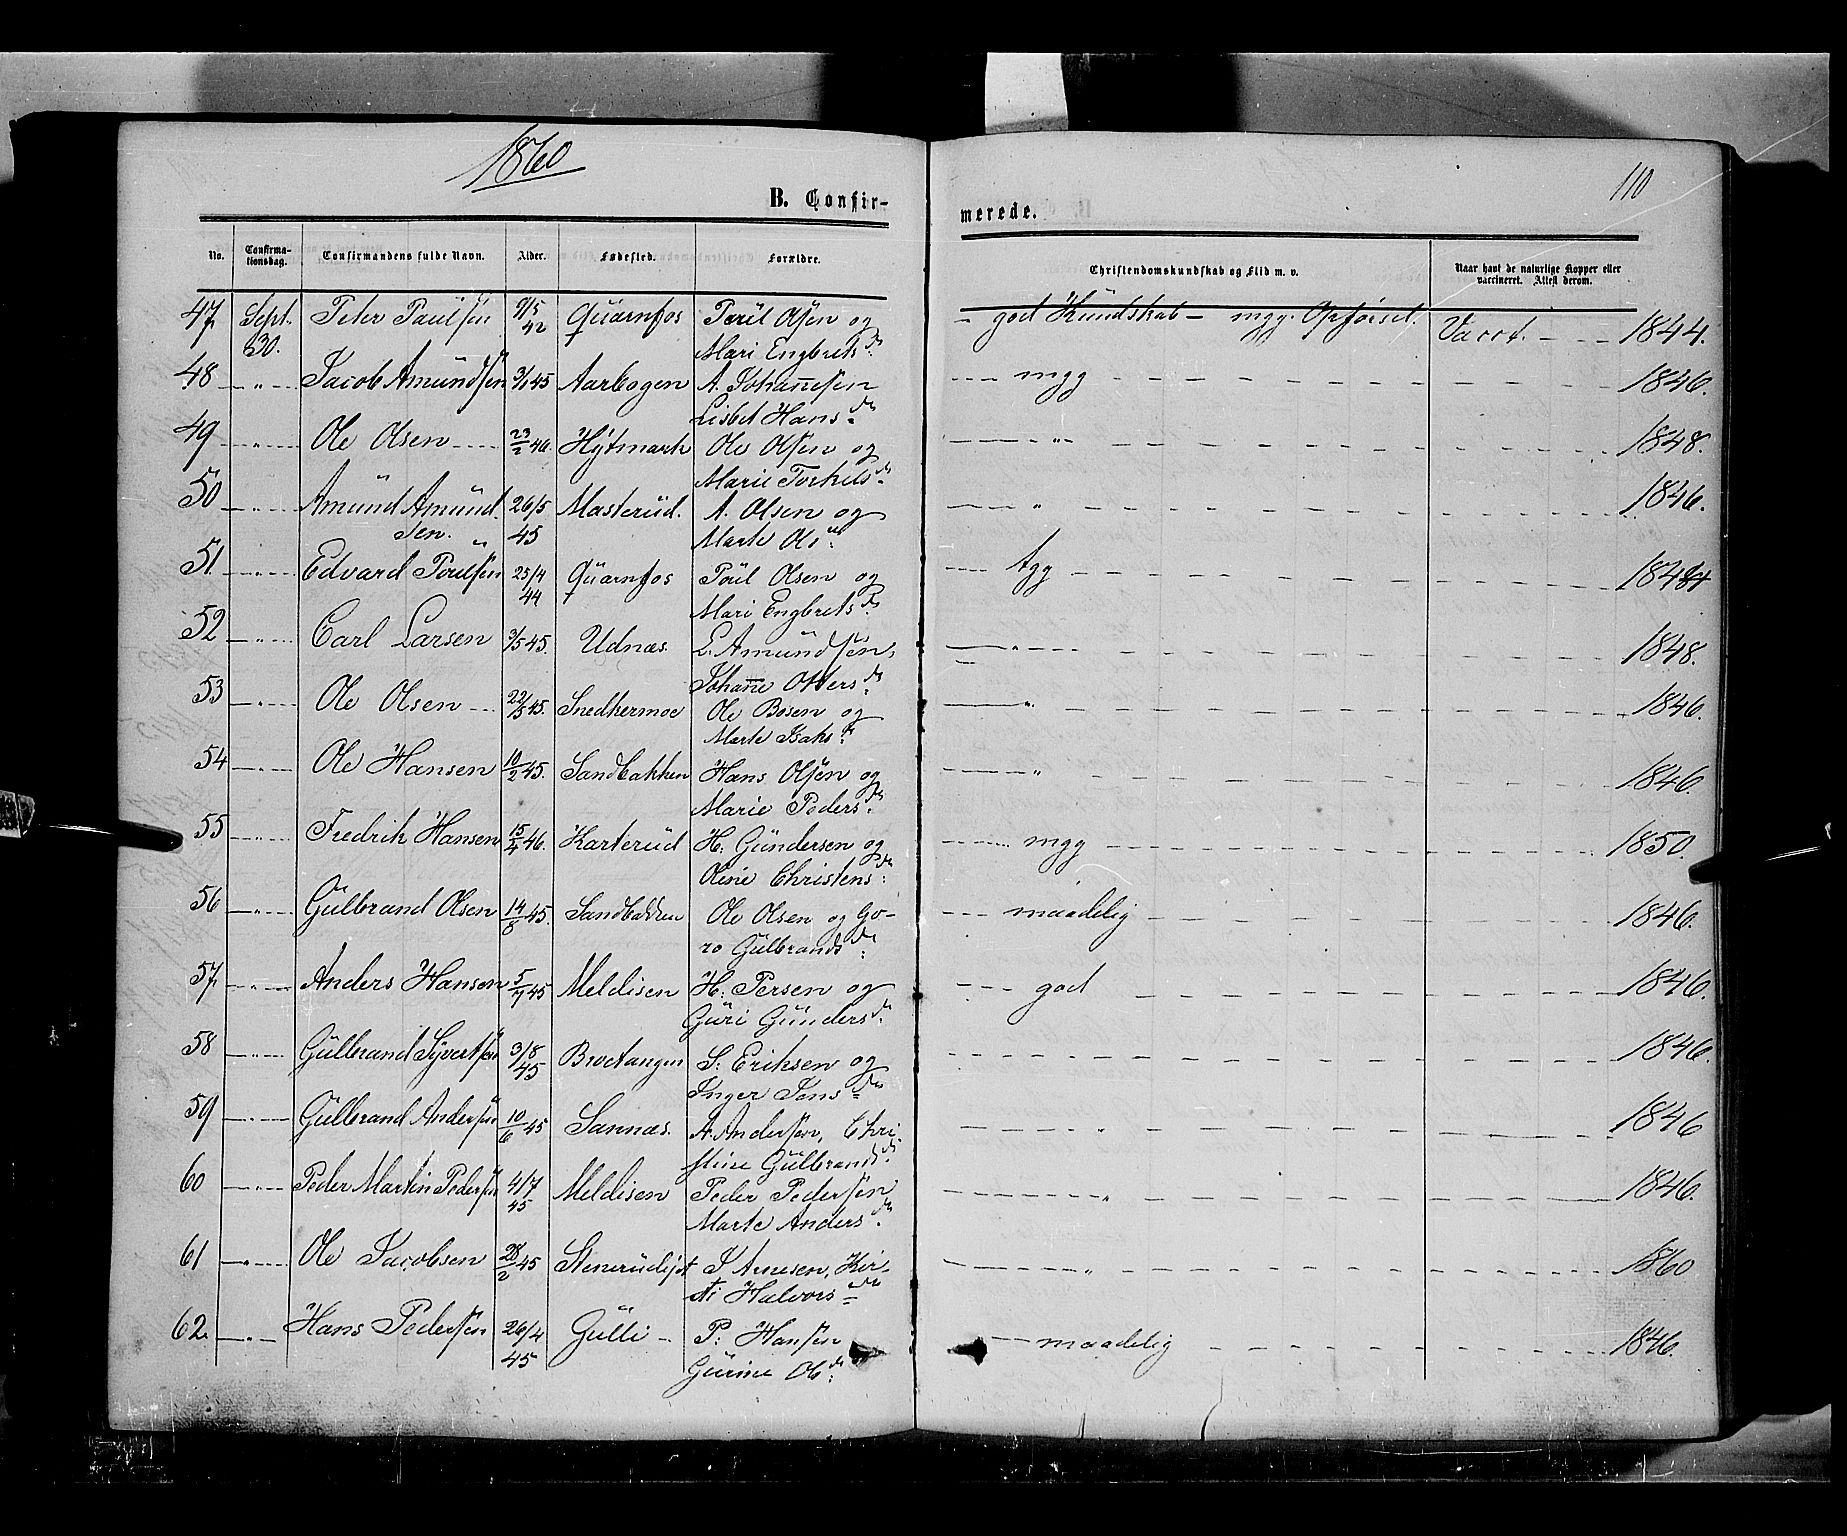 1860
110
B. Confir-
merede.
No. Confirma-tionsdag. Confirmandens fulde Navn. Alder. Fødested. Forældre. Christendomskundskab og Flid m. v. Naar havt de naturlige Kopper eller vaccineret. Attest derom.
47 Sept. Peter Paulsen 9/5 Quarnfos Poul Olsen og - god Kundskab - mgg. Opførsel. Vacct. - - 1844.
30. 42 Mari Engbretsdr.
48 - " - Jacob Amundsen 3/1 45 Aarbogen A. Johannesen - - - mgg 1846.
Lisbet Hansdr.
49 - " - Ole Olsen - - - 23/2 46. Hytmark Ole Olsen og - " - 1848.
Marie Torkilsdr.
50 - " - Amund Amund- 26/5 Masterud. A. Olsen og " 1846.
sen. 45 Marte Olsdr.
51 - " - Edvard Poulsen 25/4 Quarnfos Poul Olsen og - - - tgg
44 Mari Engbretsdr.
52 - " - Carl Larsen 3/5 45. Udnæs. L. Amundsen, - " - 1848.
Johanne Ottersdr.
53 - " - Ole Olsen - - 22/5 45. Snedkermoe Ole Bosen og - " 1846.
Marte Isaksdr.
54 - " - Ole Hansen 10/2 45. Sandbakken Hans Olsen og - " 1846.
Marie Pedersdr.
55 - " - Fredrik Hansen 15/4 46. Karterud H. Gundersen og - - - mgg 1850.
Oline Christensdr.
56 - " - Gulbrand Olsen 14/8 45. Sandbakken Ole Olsen og Go- - - - maadelig 1846.
ro Gulbrandsdr.
57 - " - Anders Hansen 5/7 45 Meldisen H. Persen og - - - god 1846.
Guri Gundersdr.
58 - " - Gulbrand Syvertsen 3/8 Brotangen S. Eriksen og 1846.
45 Inger Jensdr.
59 - " - Gulbrand Andersen 10/6 45 Sannæs. A. Andersen, Chri- " 1846
stine Gulbrandsdr.
60 - " - Peder Martin Pedersen 4/7 Meldisen Peder Pedersen " 1846.
45 Marte Andersdr.
61 - " - Ole Jacobsen 28/2 45 J. Arnesen, Kir- " 1860
sti Halvorsdr.
62. - " - Hans Pedersen 26/4 Gulli - P. Hansen - - maadelig 1846.
45 Gurine Olsdr.